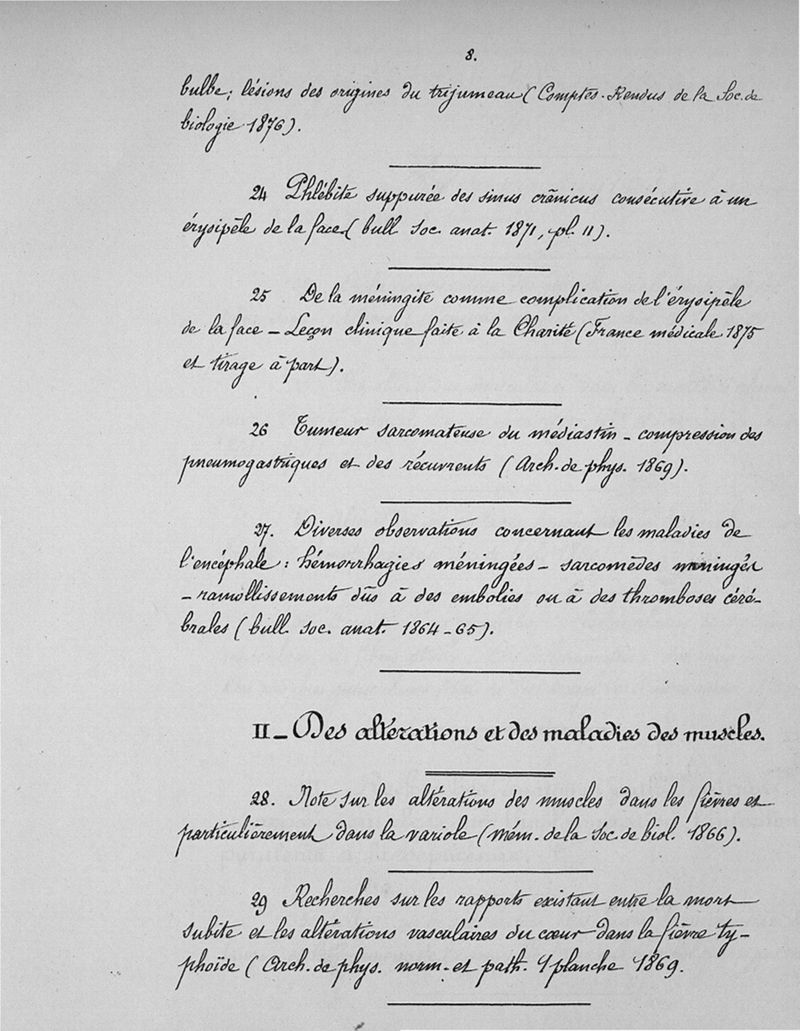 8.
bulbe; lésions des origines du trijumeau (Comptes-Rendus de la Soc. de
biologie 1876).
24 Phlébite suppurée des sinus crâniens consécutive à un
érysipèle de la face (bull. Soc. anat. 1871, pl. 11).
25 De la méningite comme complication de l'érysipèle
de la face – Leçon clinique faite à la Charité (France médicale 1875
et tirage à part).
26 Tumeur sarcomateuse du médiastin – compression des
pneumogastriques et des récurrents (Arch. de phys. 1869).
27. Diverses observations concernant les maladies de
l'encéphale : hémorrhagies méningées – sarcomèdes méningés
– ramollissements dûs à des embolies ou à des thromboses céré-
brales (bull. soc. anat. 1864-65).
II – Des altérations et des maladies des muscles.
28. Note sur les altérations des muscles dans les fièvres et
particulièrement dans la variole (mém. de la Soc. de biol. 1866).
29 Recherches sur les rapports existant entre la mort
subite et les altérations vasculaires du cœur dans la fièvre ty-
phoïde (Arch. de phys. norm. et path. 1 planche 1869.